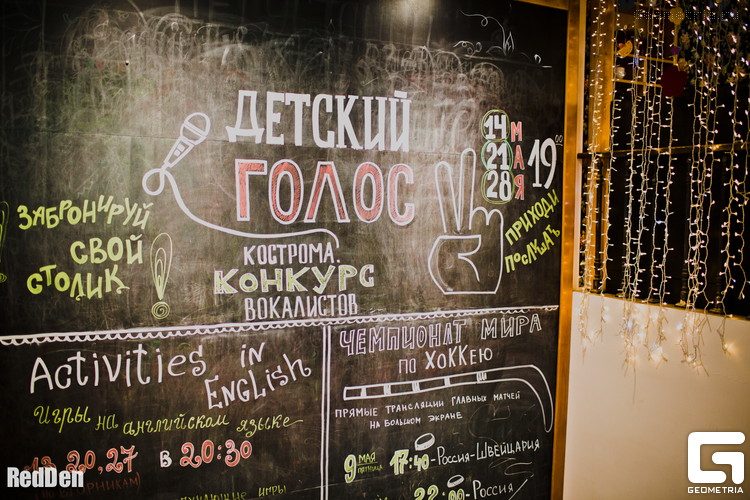 ДЕТСКИЙ
ГОЛОС
КОСТРОМА.
КОНКУРС
ВОКАЛИСТОВ
14
21
28
МАЯ
19⁰⁰
ПРИХОДИ
ПОСЛУШАТЬ
ЗАБРОНИРУЙ
СВОЙ
СТОЛИК!
Activities in
English
Игры на английском языке
13, 20, 27 в 20:30
ЧЕМПИОНАТ МИРА
ПО ХОККЕЮ
ПРЯМЫЕ ТРАНСЛЯЦИИ ГЛАВНЫХ МАТЧЕЙ
НА БОЛЬШОМ ЭКРАНЕ
9 МАЯ ПЯТНИЦА 17:40 - РОССИЯ-ШВЕЙЦАРИЯ
22:00 - РОССИЯ
RedDen
GEOMETRIA